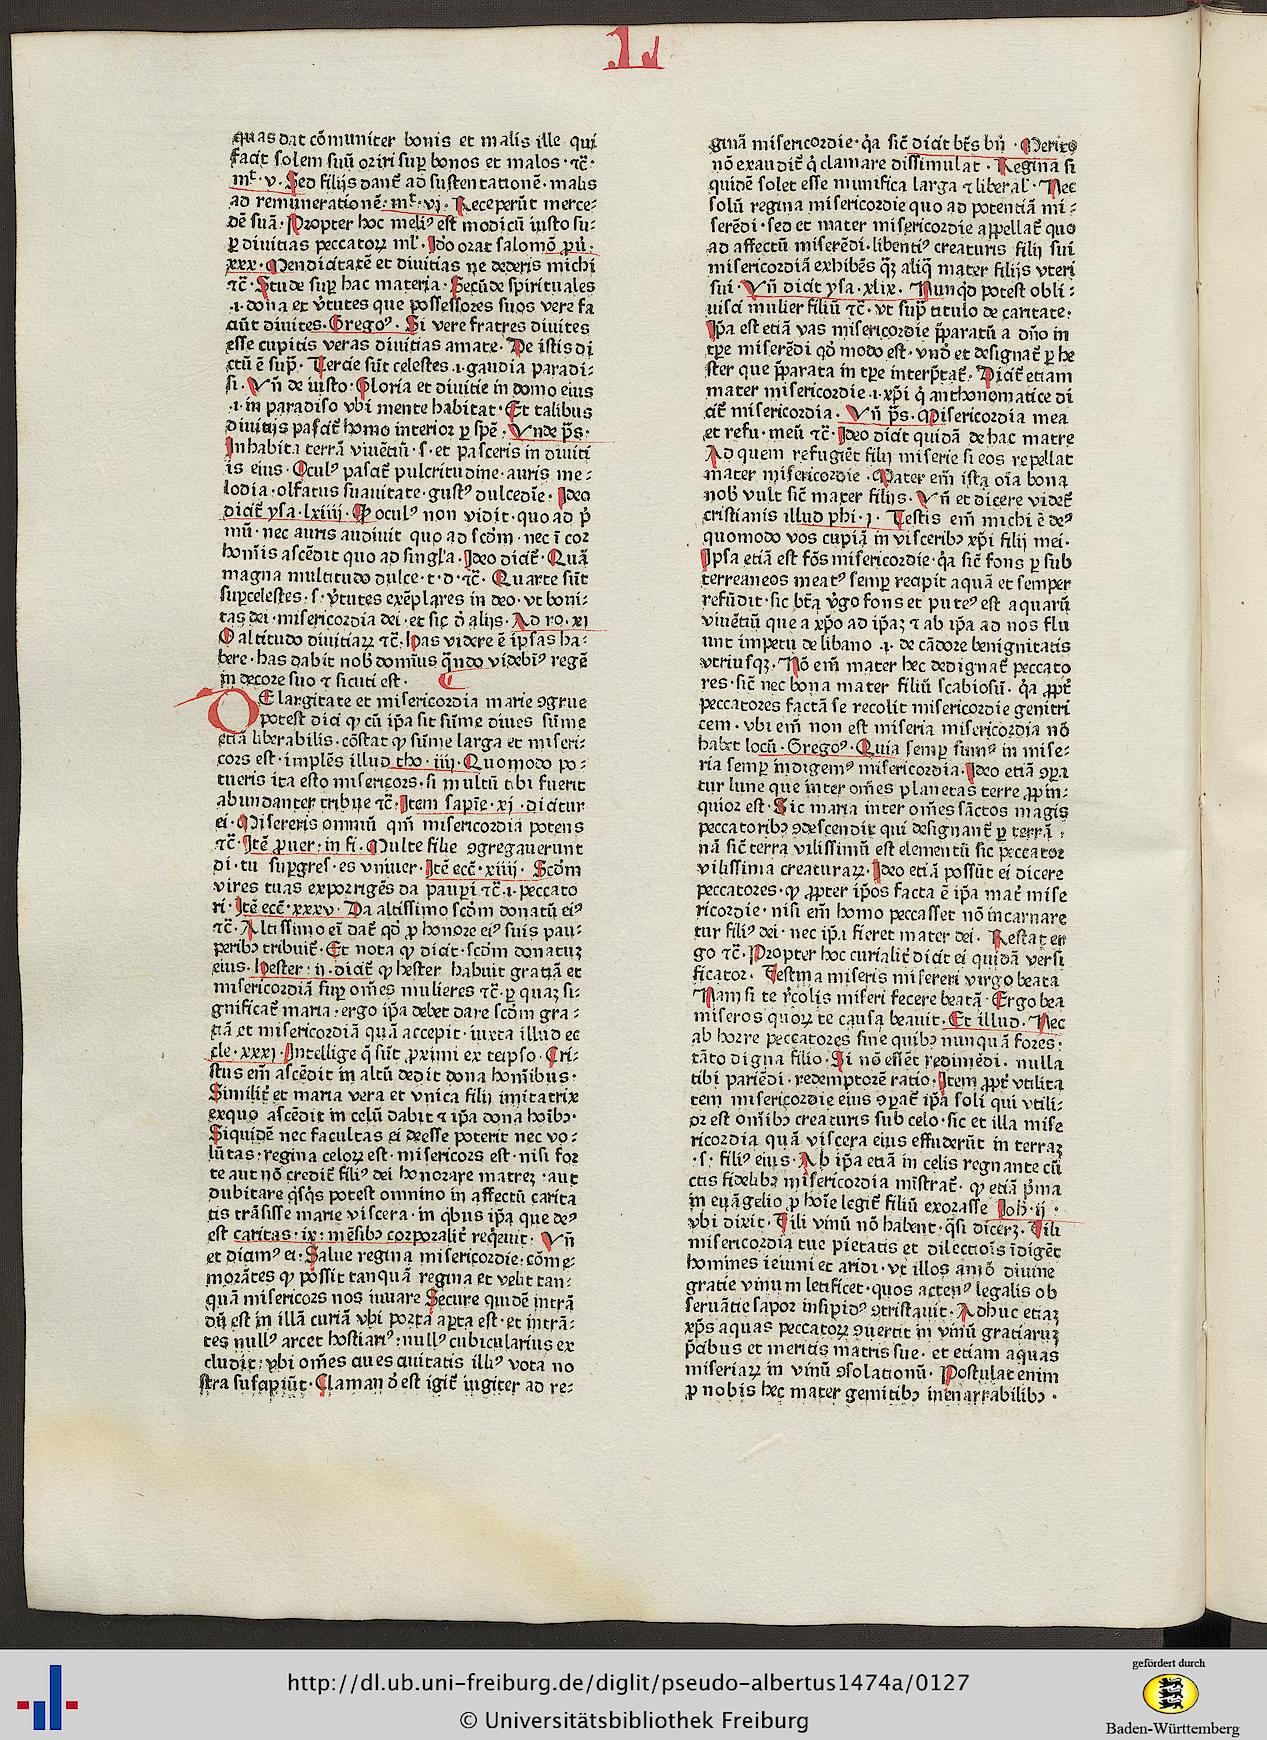 .L.
quas dat cōmuniter bonis et malis ille qui
facit solem suū oriri sup bonos et malos · ⁊c̄ ·
mt̄ · v · Sed filijs dant᷑ ad sustentationē · malis
ad remunerationē · mt̄ · vj · Receperūt merce-
dē suā · Propter hoc meliꝰ est modicū iusto su-
ꝑ diuitias peccatoꝝ ml̄ · Ido orat salomō ꝓū ·
xxx · Mendicitatē et diuitias ne dederis michi
⁊c̄ · Stude sup hac materia · Secūde spirituales
.i. dona et v̄tutes que possessores suos vere fa
ciūt diuites · Gregoꝰ · Si vere fratres diuites
esse cupitis veras diuitias amate · De istis di
ctū ē sup̄ · Tercie sūt celestes .i. gaudia paradi-
si · Vn̄ de iusto · Gloria et diuitie in domo eius
.i. in paradiso vbi mente habitat · Et talibus
diuitijs pascit᷑ homo interior ꝑ spē · Vnde p̄s ·
Inhabita terrā viuētiū · s · et pasceris in diuiti
is eius · Oculꝰ pascit᷑ pulcritudine · auris me-
lodia · olfatus suauitate · gustꝰ dulcedīe · Ideo
dicit᷑ ysa · lxiiij · Ꝙ oculꝰ non vidit · quo ad p̄
mū · nec auris audiuit quo ad scd̄m · nec ī cor
hoīnis ascēdit quo ad singl̄a · Ideo dicit᷑ · Quā
magna multitudo dulce · t · d · ⁊c̄ · Quarte sūt
supcelestes · s · v̄tutes exēplares in deo · vt boni-
tas dei · misericordia dei · et sic d̄ alijs · Ad ro · xj
O altitudo diuitiaꝝ ⁊c̄ · has videre ē ip̄sas ha-
bere · has dabit nob̄ domīus qn̄do videbiꝰ regē
in decore suo ⁊ sicuti est ·
DE largitate et misericordia marie ꝯgrue
potest dici ꝙ cū ip̄a sit sūme diues sūme
etiā liberabilis · cōstat ꝙ sūme larga et miseri-
cors est · implēs illud tho · iiij · Quomodo po-
tueris ita esto misericors · si multū tibi fuerit
abundanter tribue ⁊c̄ · Item sapīe · xj · dicitur
ei · Misereris omniū qm̄ misericordia potens
⁊c̄ · Itē ꝓuer · in fi · Multe filie ꝯgregauerunt
di · tu supgres · es vniuer · Itē ecc̄ · xiiij · Scd̄m
vires tuas exporrigēs da paupi ⁊c̄ .i. peccato
ri · Itē ecc̄ · xxxv · Da altissimo scd̄m donatū eiꝰ
⁊c̄ · Altissimo eī dat᷑ qd̄ ꝓ honore eiꝰ suis pau-
peribꝫ tribuit᷑ · Et nota ꝙ dicit · scd̄m donatuꝫ
eius · Hester · ij · dicit᷑ ꝙ hester habuit gratiā et
misericordiā sup om̄es mulieres ⁊c̄ · ꝑ quaꝫ si-
gnificat᷑ maria · ergo ip̄a debet dare scd̄m gra-
tiā et misericordiā quā accepit · iuxta illud ec
cle · xxxj · Intellige q̄ sūt ꝓximi ex teipso · Cri-
stus em̄ ascēdit in altū dedit dona hoīnibus ·
Similit᷑ et maria vera et vnica filij imitatrix
exquo ascēdit in celū dabit ⁊ ip̄a dona hoībꝫ ·
Siquidē nec facultas ei deesse poterit nec vo-
lūtas · regina celoꝝ est · misericors est · nisi for
te aut nō credit᷑ filiꝰ dei honorare matreꝫ · aut
dubitare q̄sq̄s potest omnino in affectū carita
tis trāsisse marie viscera · in q̄bus ip̄a que deꝰ
est caritas · ix · mēsibꝫ corporalit᷑ req̄euit · Vn̄
et dicimꝰ ei · Salue regina misericordie · cōme-
morātes ꝙ possit tanquā regina et velit tan-
quā misericors nos iuuare Secure quidē intrā
dū est in illā curiā vbi porta apta est · et intrā-
tes nullꝰ arcet hostiariꝰ · nullꝰ cubicularius ex
cludit · vbi om̄es ciues ciuitatis illiꝰ vota no
stra suscipiūt · Claman d̄ est igit᷑ iugiter ad re-
ginā misericordie · q̄a sic̄ dicit bt̄s bn̄ · Merito
nō exaudit᷑ q̄ clamare dissimulat · Regina si
quidē solet esse munifica larga ⁊ liberal̄ · Nec
solū regina misericordie quo ad potentiā mi-
serēdi · sed et mater misericordie appellat᷑ quo
ad affectū miserēdi · libentiꝰ creaturis filij sui
misericordiā exhibēs q̄ꝫ aliq̄ mater filijs vteri
sui · Vn̄ dicit ysa · xlix · Nunq̄d potest obli-
uisci mulier filiū ⁊c̄ · vt sup̄ titulo de caritate ·
Ip̄a est etiā vas misericordie p̄paratū a dn̄o in
tp̄e miserēdi qd̄ modo est · vnd̄ et designat᷑ ꝑ he
ster que p̄parata in tp̄e interp̄tat᷑ · Dicit᷑ etiam
mater misericordie .i. xp̄i q̄ anthonomatice di
cit᷑ misericordia · Vn̄ p̄s · Misericordia mea
et refu · meū ⁊c̄ · Ideo dicit quidā de hac matre
Ad quem refugiēt filij miserie si eos repellat
mater misericordie · Mater em̄ ista oīa bona
nob̄ vult sic̄ mater filijs · Vn̄ et dicere videt᷑
cristianis illud phi · j · Testis em̄ michi ē deꝰ
quomodo vos cupiā in visceribꝫ xp̄i filij mei ·
Ipsa etiā est fōs misericordie · q̄a sic̄ fons ꝑ sub
terreaneos meatꝰ semp recipit aquā et semper
refūdit · sic bt̄a v̄go fons et puteꝰ est aquarū
viuētiū que a xp̄o ad ip̄aꝫ ⁊ ab ip̄a ad nos flu
unt impetu de libano .i. de cādore benignitatis
vtriusqꝫ · Nō em̄ mater hec dedignat᷑ peccato
res · sic̄ nec bona mater filiū scabiosū · q̄a ꝓpt᷑
peccatores factā se recolit misericordie genitri
cem · vbi em̄ non est miseria misericordia nō
habet locū · Gregoꝰ · Quia semp sumꝰ in mise-
ria semp indigemꝰ misericordia · Ideo etiā ꝯpa
tur lune que inter om̄es planetas terre ꝓpin-
quior est · Sic maria inter om̄es sāctos magis
peccatoribꝫ ꝯdescendit qui designant᷑ ꝑ terrā ·
nā sic̄ terra vilissimū est elementū sic peccator
vilissima creaturaꝝ · Ideo etiā possūt ei dicere
peccatores · ꝙ ꝓpter ip̄os facta ē ip̄a mat᷑ mise
ricordie · nisi em̄ homo peccasset nō incarnare
tur filiꝰ dei · nec ip̄a fieret mater dei · Restat er
go ⁊c̄ · Propter hoc curialit᷑ dicit ei quidā versi
ficator · Festina miseris misereri virgo beata
Nam si te r̄colis miseri fecere beatā · Ergo bea
miseros quoꝝ te causa beauit · Et illud · Nec
ab horre peccatores sine quibꝫ nunquā fores ·
tāto digna filio · Si nō essēt redimēdi · nulla
tibi pariēdi · redemptorē ratio · Item ꝓpt᷑ vtilita
tem misericordie eius ꝯpat᷑ ip̄a soli qui vtili-
or est om̄ibꝫ creaturis sub celo · sic et illa mise
ricordia quā viscera eius effuderūt in terraꝫ
· s · filiꝰ eius · Ab ip̄a etiā in celis regnante cū
ctis fidelibꝫ misericordia mīstrat᷑ · ꝙ etiā p̄ma
in euāgelio ꝓ hoīe legit᷑ filiū exorasse Joh̄ · ij ·
vbi dixit · Fili vinū nō habent · q̄si dicerꝫ · Fili
misericordia tue pietatis et dilectiōis īdigēt
homines ieiuni et aridi · vt illos amō diuine
gratie vinum letificet · quos actenꝰ legalis ob
seruātie sapor insipidꝰ ꝯtristauit · Adhuc etiaꝫ
xp̄s aquas peccatoꝝ ꝯuertit in vinū gratiaruꝫ
p̄cibus et meritis matris sue · et etiam aquas
miseriaꝝ in vinū ꝯsolationū · Postulat enim
ꝓ nobis hec mater gemitibꝫ inenarrabilibꝫ ·
http://dl.ub.uni-freiburg.de/diglit/pseudo-albertus1474a/0127
© Universitätsbibliothek Freiburg
gefördert durch
Baden-Württemberg